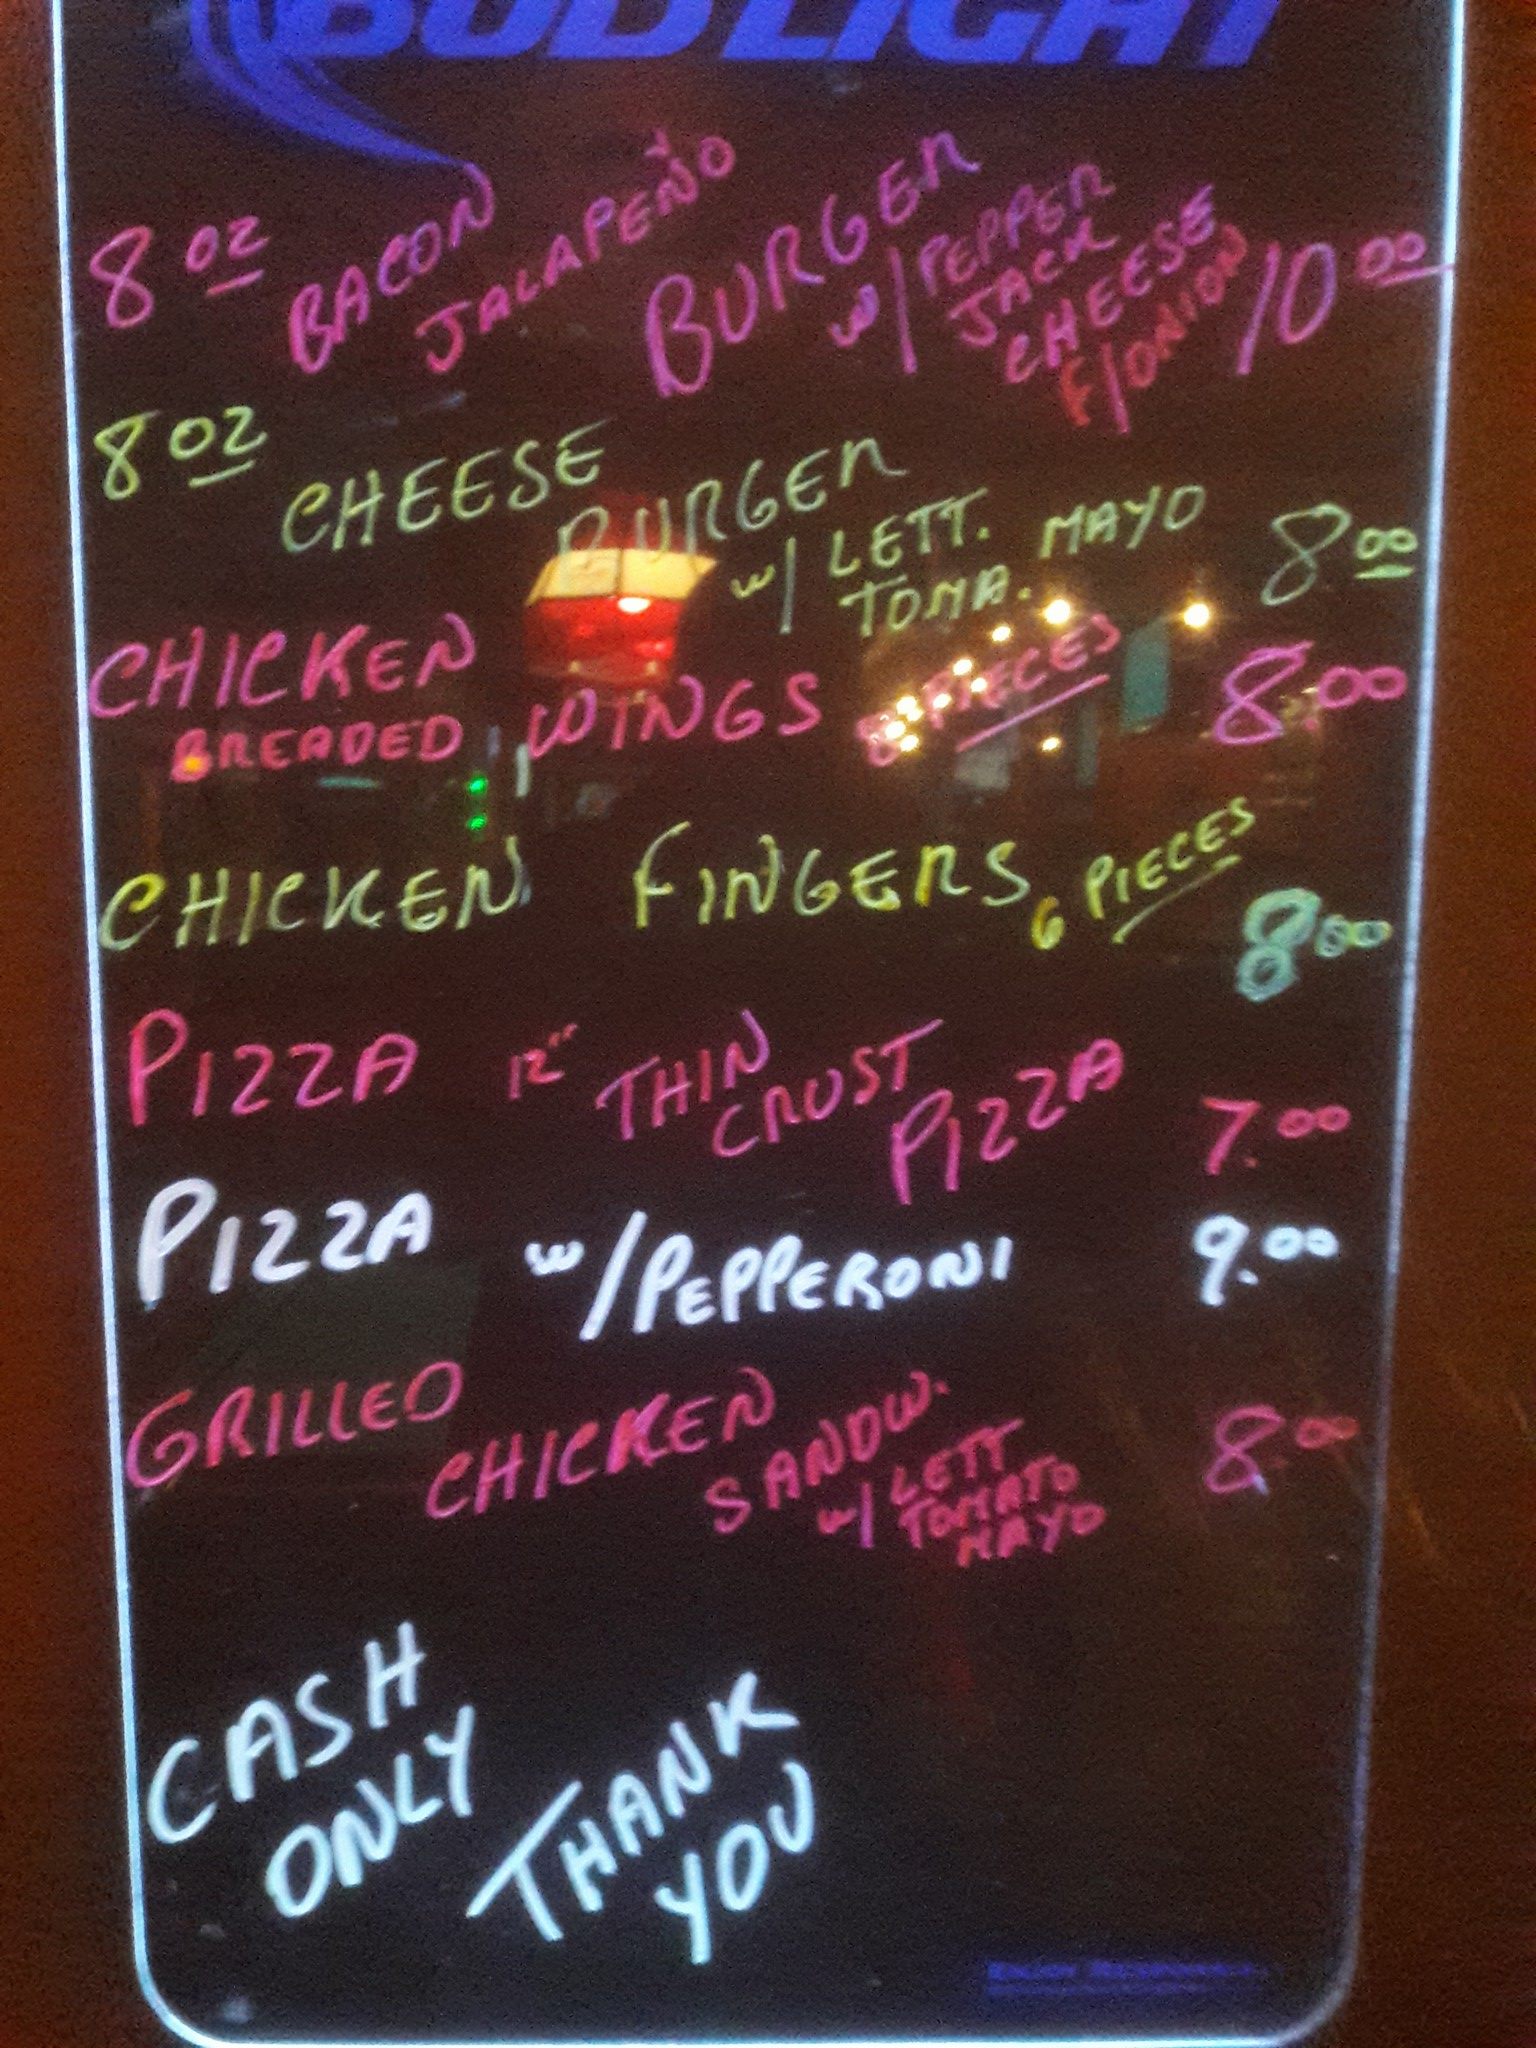 BUD LIGHT
8 oz BACON JALAPEÑO BURGER w/ PEPPER JACK CHEESE F/ONION 10.00
8 oz CHEESE BURGER w/ LETT. TOMA. MAYO 8.00
CHICKEN BREADED WINGS 8 PIECES 8.00
CHICKEN FINGERS 6 PIECES 8.00
PIZZA 12" THIN CRUST PIZZA 7.00
PIZZA w/PEPPERONI 9.00
GRILLED CHICKEN SANDW. w/ LETT TOMATO MAYO 8.00
CASH ONLY
THANK YOU